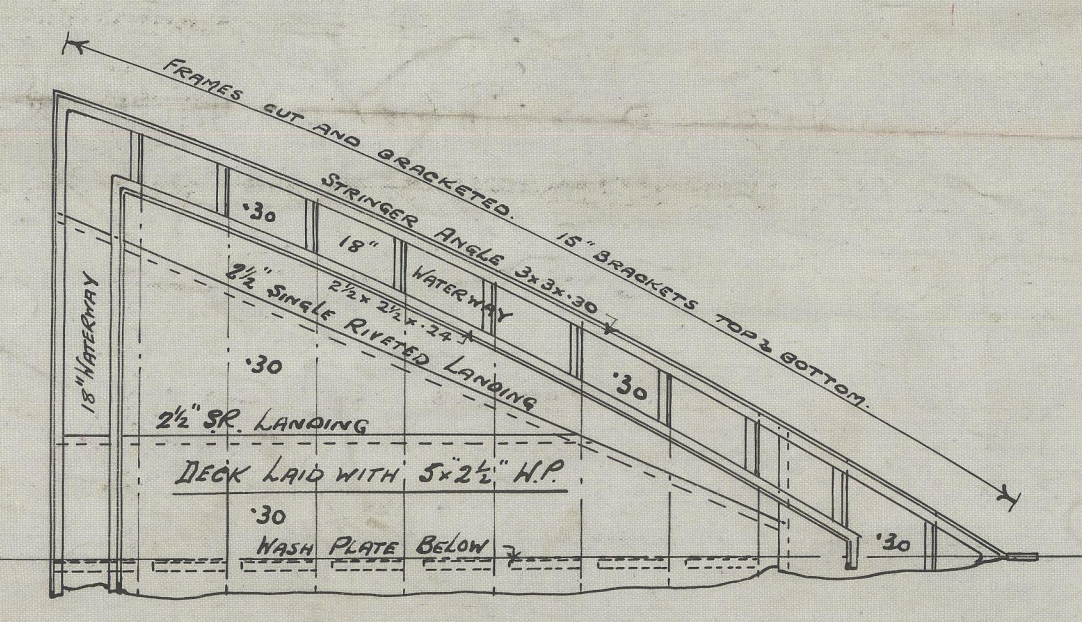 FRAMES CUT AND BRACKETED. 15" BRACKETS TOP & BOTTOM.
STRINGER ANGLE 3x3x·30
·30
18"
WATERWAY
·30
2½ x 2½ x ·24
2½" SINGLE RIVETED LANDING
18" WATERWAY
·30
2½" S.R. LANDING
DECK LAID WITH 5"x2½" W.P.
·30
WASH PLATE BELOW
·30